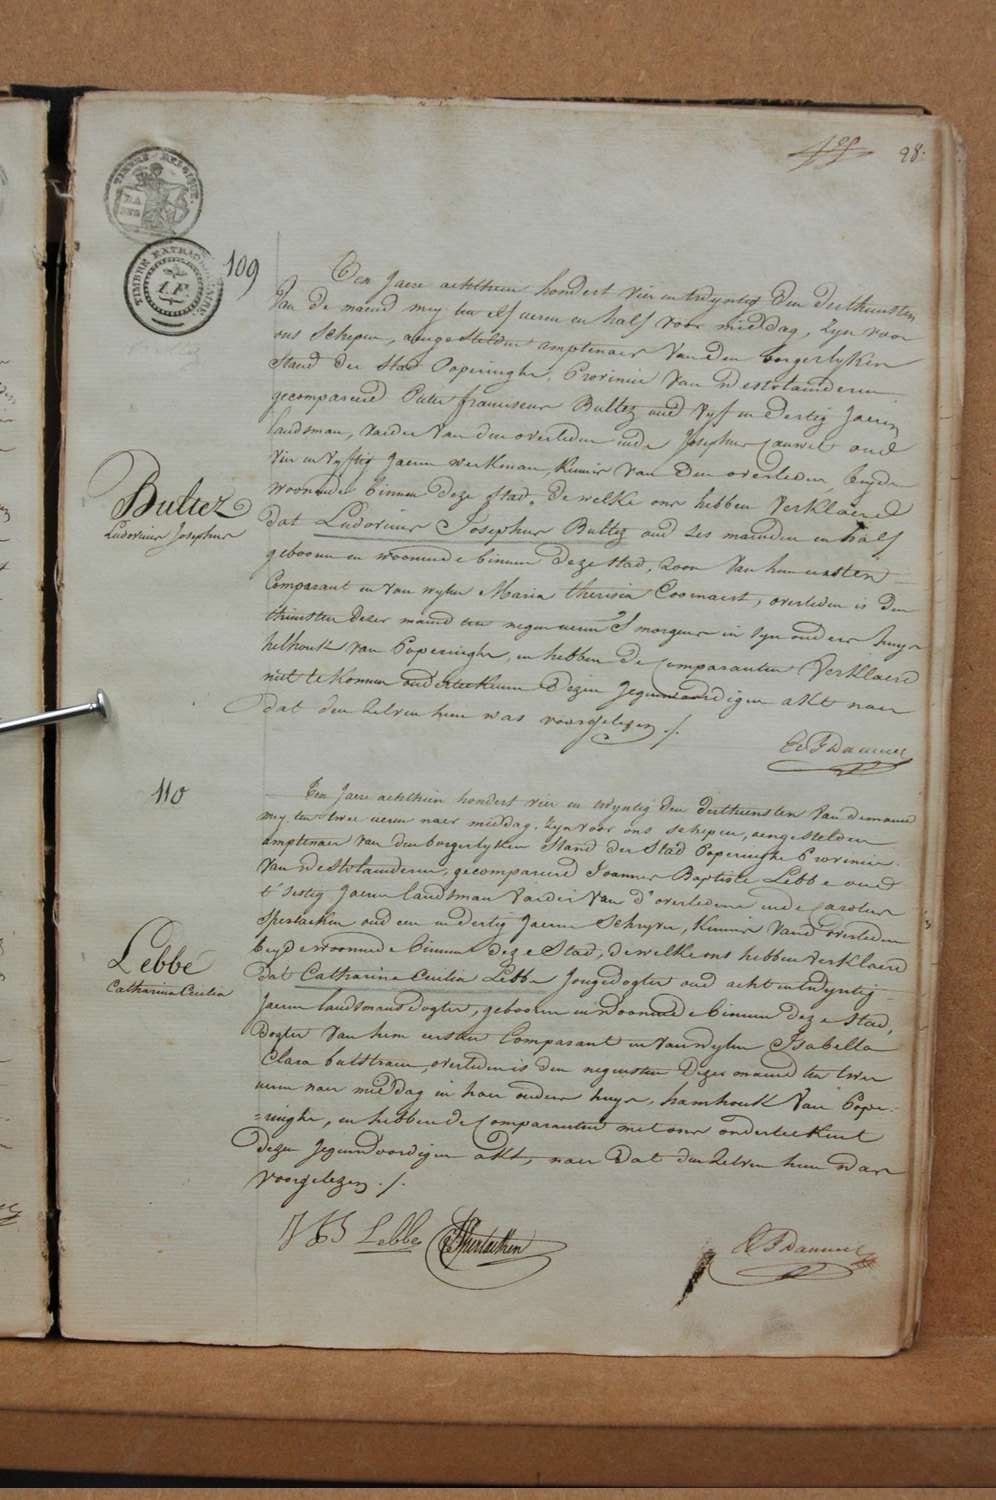 98.
TIMBRE BELGIQUE.
TIMBRE EXTRAORDINAIRE
109
Ten Jaere achthien hondert vier en twyntig den derthiensten
Van de maend mey ten elf ueren en half voor middag, Zyn voor
ons Schepen, aengestelden amptenaer Van den borgerlyken
Stand der Stad Poperinghe, Provincie Van Westvlaenderen
gecompareerd Pieter franciscus Bultez oud Vyf en dertig Jaeren
landsman, Vaeder Van den overleden ende Josephus Cauwel oud
Vier en vyftig Jaeren werkman, Kennis van den overleden, beyde
woonende binnen deze Stad, de welke ons hebben Verklaerd
dat Ludovicus Josephus Bultez oud zes maenden en half
gebooren en woonende binnen deze stad, zoon Van hun eersten
Comparant en van wylen Maria theresia Coornaert, overleden is den
thiensten dezer maend ten negen ueren S morgens in syn ouders huys
helhouk van Poperinghe, en hebben de Comparanten Verklaerd
niet te konnen onderteekenen dezen Jegenwoordigen akt naer
dat den zelven hun was voorgelezen ./.
Bultez
Ludovicus Josephus
110
Ten Jaere achthien hondert vier en twyntig den derthiensten Van de maend
mey ten twee ueren naer middag, Zyn voor ons schepen, aengestelden
amptenaer van den borgerlyken Stand der Stad Poperinghe Provincie
Van Westvlaenderen, gecompareerd Joannes Baptiste Lebbe oud
t'sestig Jaeren landsman Vaeder Van d'overledene ende Carolus
Spertachen oud een en dertig Jaeren Schryver, Kennis Vand overleden
beyde woonende binnen deze Stad, de welke ons hebben Verklaerd
dat Catharina Cecilia Lebbe Jongedogter oud acht en twyntig
Jaeren landsmans dogter, gebooren en woonende binnen deze Stad,
Dogter Van hem eersten Comparant en van wylen Isabella
Clara overleden is den negensten dezer maend ten twee
ueren naer middag in haer ouders huys, hamhouk Van Pope-
=ringhe, en hebben de Comparanten met ons onderteekent
dezen Jegenwoordigen akt, naer dat den zelven hun was
Voorgelezen ./.
Lebbé
Catharina Cecilia
Lebbe